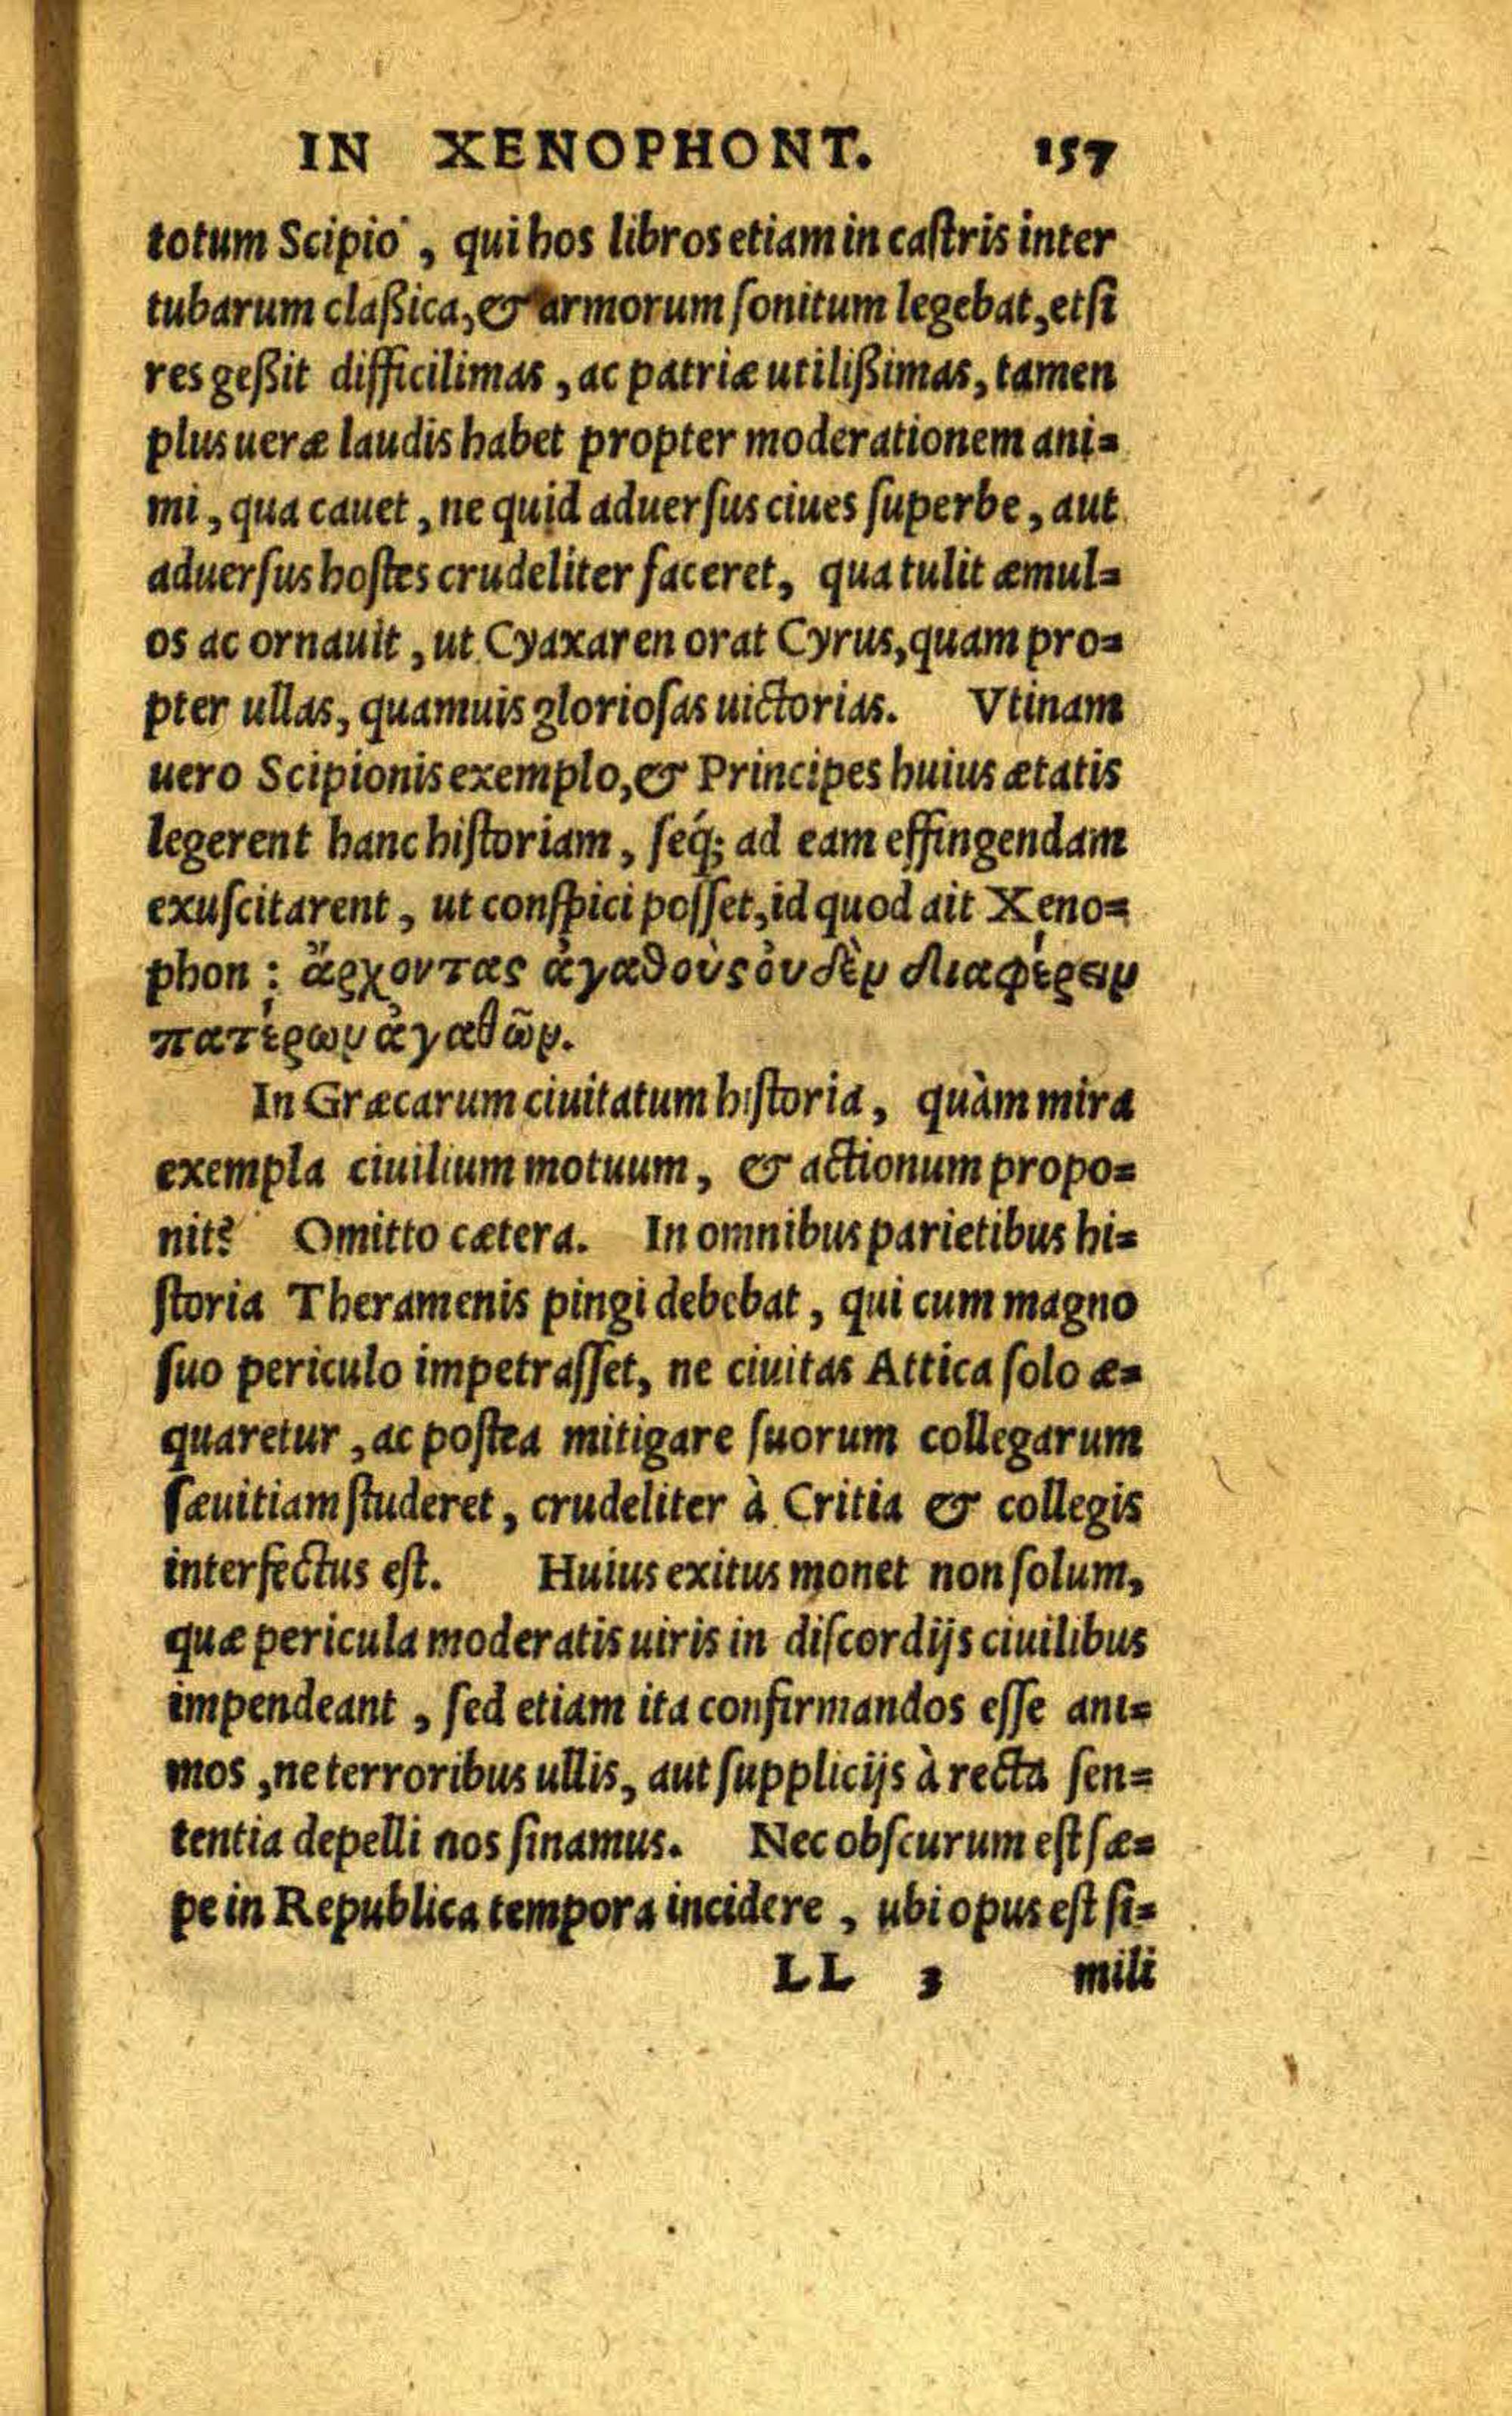 IN XENOPHONT. 157
totum Scipio, qui hos libros etiam in castris inter
tubarum claßica, & armorum sonitum legebat, etsi
res geßit difficilimas, ac patriæ utilißimas, tamen
plus ueræ laudis habet propter moderationem ani=
mi, qua cauet, ne quid aduersus ciues superbe, aut
aduersus hostes crudeliter faceret, qua tulit æmul=
os ac ornauit, ut Cyaxaren orat Cyrus, quam pro=
pter ullas, quamuis gloriosas uictorias. Vtinam
uero Scipionis exemplo, & Principes huius ætatis
legerent hanc historiam, seq́; ad eam effingendam
exuscitarent, ut conspici posset, id quod ait Xeno=
phon: ἄρχοντας ἀγαθοὺς ὀυδὲν διαφέρειν
πατέρων ἀγαθῶν.
In Græcarum ciuitatum historia, quàm mira
exempla ciuilium motuum, & actionum propo=
nit? Omitto cætera. In omnibus parietibus hi=
storia Theramenis pingi debebat, qui cum magno
suo periculo impetrasset, ne ciuitas Attica solo æ=
quaretur, ac postea mitigare suorum collegarum
sæuitiam studeret, crudeliter à Critia & collegis
interfectus est. Huius exitus monet non solum,
quæ pericula moderatis uiris in discordijs ciuilibus
impendeant, sed etiam ita confirmandos esse ani=
mos, ne terroribus ullis, aut supplicijs à recta sen=
tentia depelli nos sinamus. Nec obscurum est sæ=
pe in Republica tempora incidere, ubi opus est si=
LL 3 mili